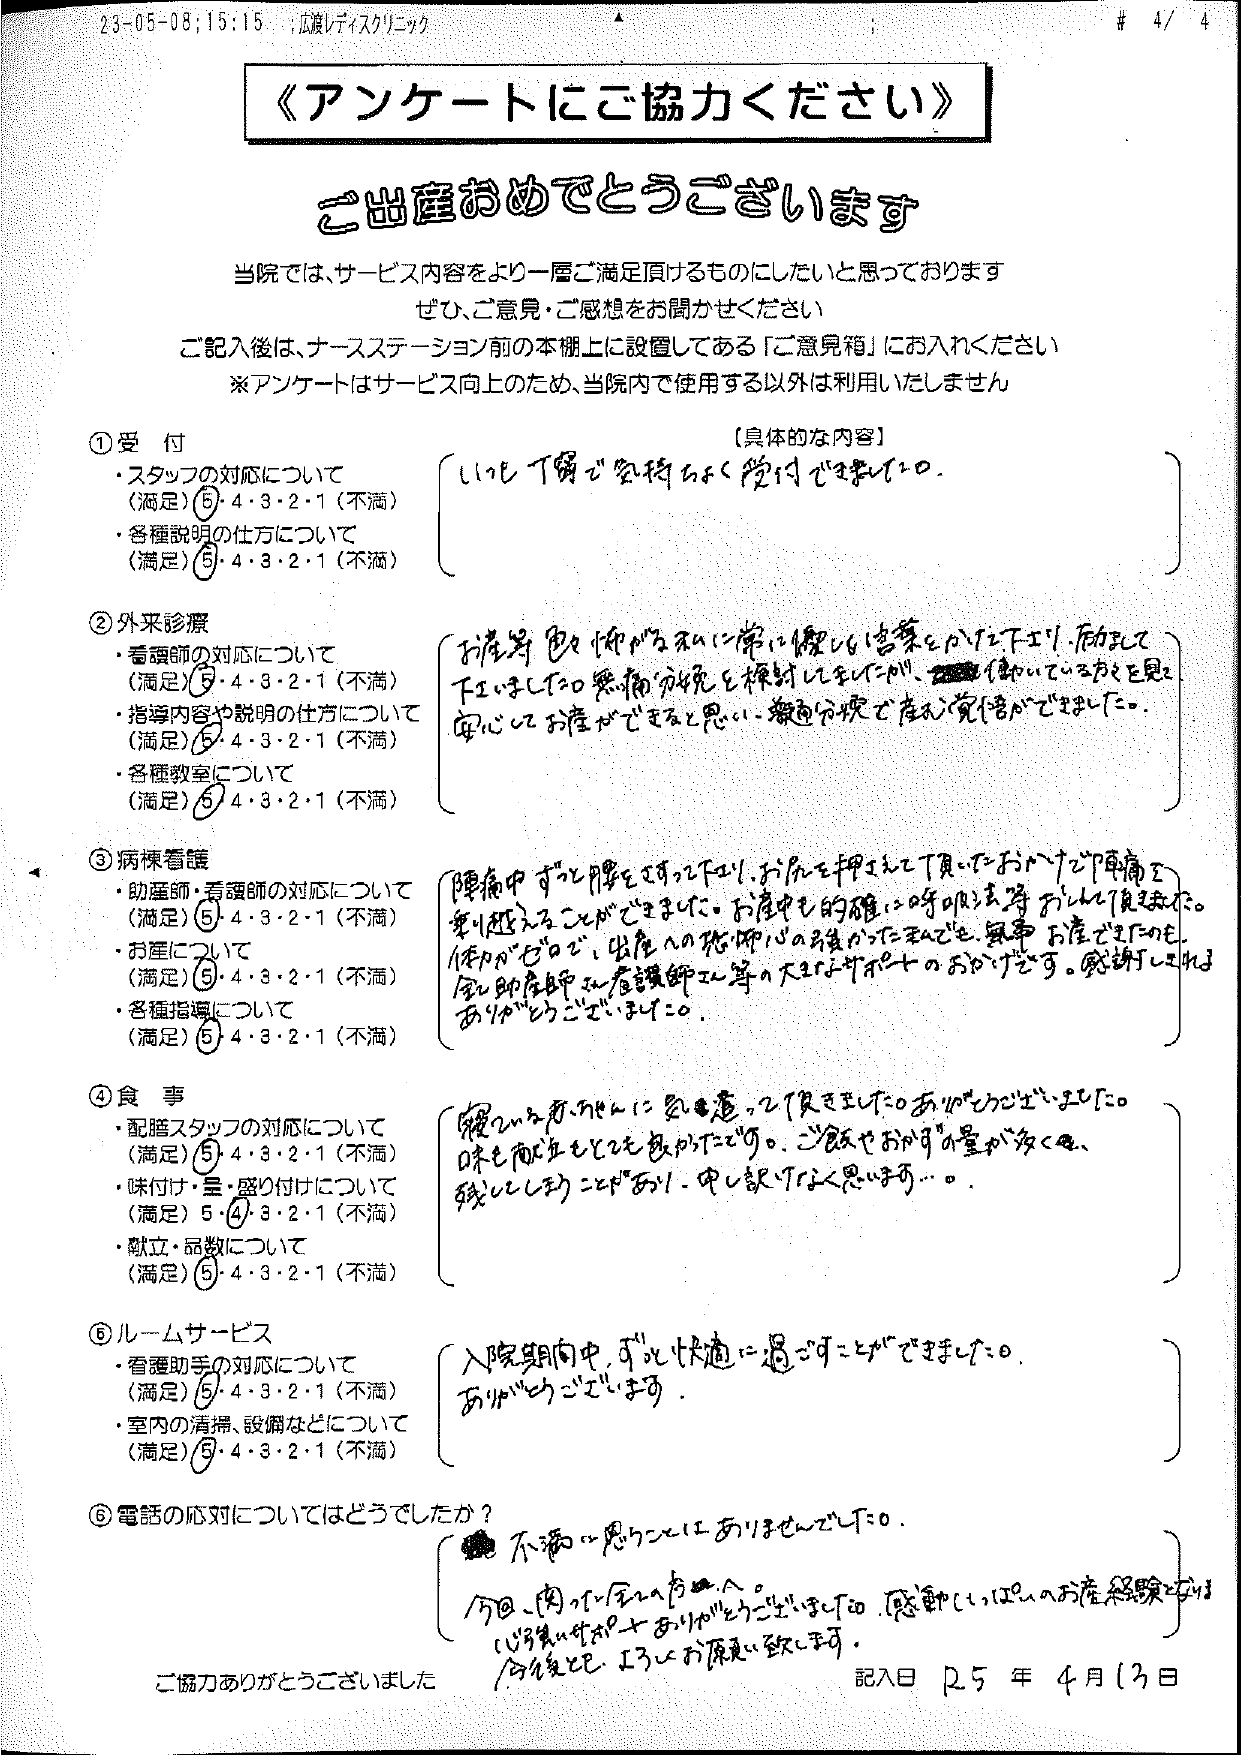 23-05-08;15:15 ;広渡レディスクリニック # 4/ 4
《アンケートにご協力ください》
ご出産おめでとうございます
当院では、サービス内容をより一層ご満足頂けるものにしたいと思っております
ぜひ、ご意見・ご感想をお聞かせください
ご記入後は、ナースステーション前の本棚上に設置してある「ご意見箱」にお入れください
※アンケートはサービス向上のため、当院内で使用する以外は利用いたしません
【具体的な内容】
①受 付
・スタッフの対応について
(満足)5・4・3・2・1(不満)
・各種説明の仕方について
(満足)5・4・3・2・1(不満)
いつも丁寧で気持ちよく受付できました。
②外来診療
・看護師の対応について
(満足)5・4・3・2・1(不満)
・指導内容や説明の仕方について
(満足)5・4・3・2・1(不満)
・各種教室について
(満足)5・4・3・2・1(不満)
お産等色々怖がる私に常に優しい言葉をかけて下さり、励まして
下さいました。無痛分娩を検討してましたが、働いている方々を見て
安心してお産ができると思い、普通分娩で産む覚悟ができました。
③病棟看護
・助産師・看護師の対応について
(満足)5・4・3・2・1(不満)
・お産について
(満足)5・4・3・2・1(不満)
・各種指導について
(満足)5・4・3・2・1(不満)
陣痛中ずっと腰をさすって下さり、お尻を押さえて頂いたおかげで陣痛を
乗り越えることができました。お産中も的確に呼吸法等おしえて頂きました。
体力がゼロで、出産への恐怖心の強かった私でも、無事お産できたのも、
全て助産師さん看護師さん等の大きなサポートのおかげです。感謝しきれません
ありがとうございました。
④食 事
・配膳スタッフの対応について
(満足)5・4・3・2・1(不満)
・味付け・量・盛り付けについて
(満足)5・4・3・2・1(不満)
・献立・品数について
(満足)5・4・3・2・1(不満)
寝ている赤ちゃんに気遣って頂きました。ありがとうございました。
味も献立もとても良かったです。ご飯やおかずの量が多く、
残してしまうことがあり、申し訳けなく思います…。
⑤ルームサービス
・看護助手の対応について
(満足)5・4・3・2・1(不満)
・室内の清掃、設備などについて
(満足)5・4・3・2・1(不満)
入院期間中、ずっと快適に過ごすことができました。
ありがとうございます。
⑥電話の応対についてはどうでしたか?
不満に思うことはありませんでした。
今回、関った全ての方へ。
心強いサポートありがとうございました。感動いっぱいのお産経験となりました
今後とも、よろしくお願い致します。
ご協力ありがとうございました
記入日 R5 年 4 月 13 日